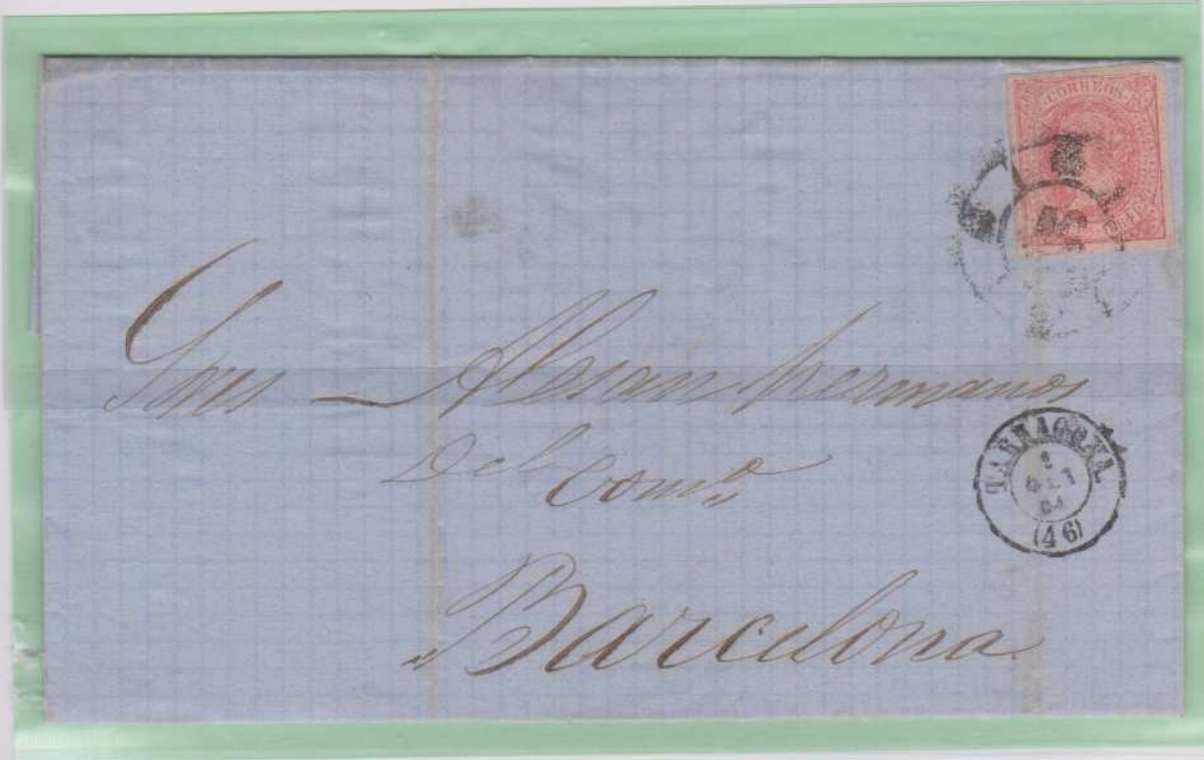 CORREOS
Sres Alesán hermanos
Del Como
TARRAGONA
(46)
Barcelona